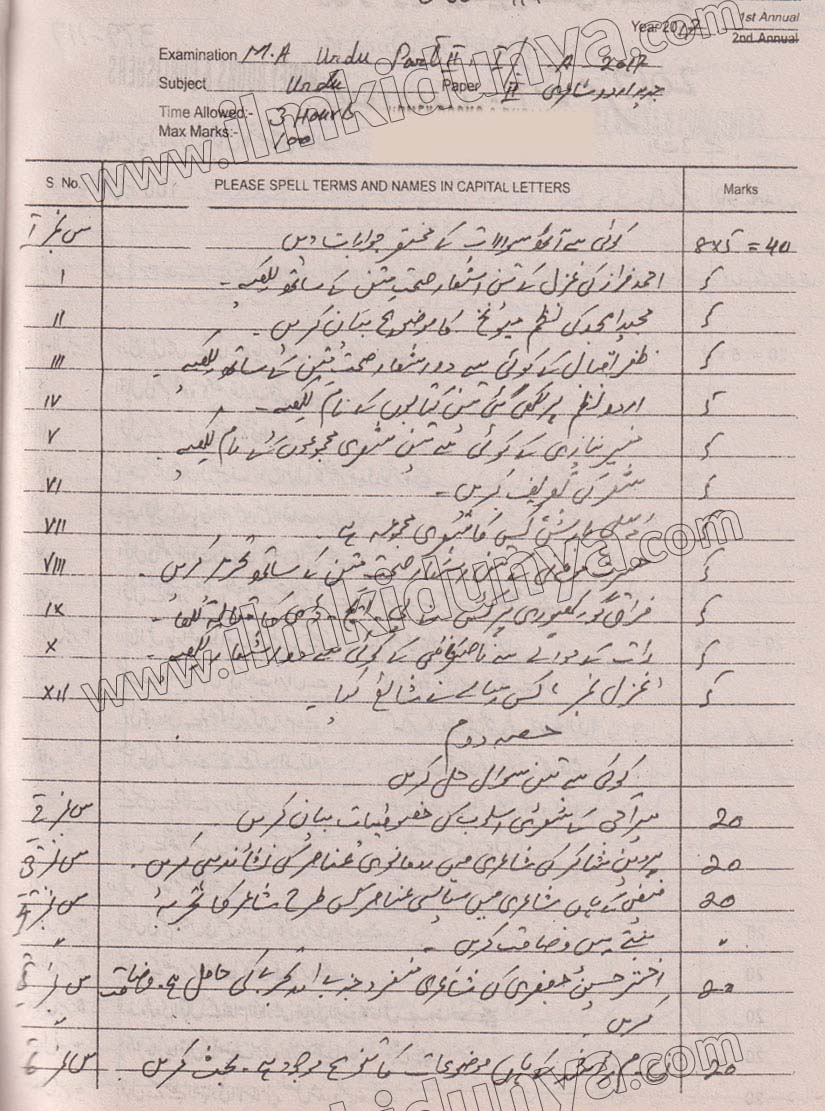 Year 2017
1st Annual
2nd Annual
Examination M.A Urdu Part II A 2017
Subject Urdu Paper II جدید اردو شاعری
Time Allowed:- 3 Hours
Max Marks:- 100
S. No. PLEASE SPELL TERMS AND NAMES IN CAPITAL LETTERS Marks
س نمبر 1 کوئی سے آٹھ سوالات کے مختصر جوابات دیں 8x5 = 40
I احمد فراز کی غزل کے تین اشعار صحت متن کے ساتھ لکھیے۔ 5
II مجید امجد کی نظم میونخ کا موضوع بیان کریں۔ 5
III ظفر اقبال کے کوئی سے دو اشعار صحت متن کے ساتھ لکھیے۔ 5
IV اردو نظم پر لکھی گئی تین کتابوں کے نام لکھیے۔ 5
V منیر نیازی کے کوئی سے تین شعری مجموعوں کے نام لکھیے۔ 5
VI شعر کی تعریف کریں۔ 5
VII کس کا شعری مجموعہ ہے۔ 5
VIII حسرت موہانی کے تین اشعار صحت متن کے ساتھ تحریر کریں۔ 5
IX فراق گورکھپوری پر کس نے پی۔ایچ۔ڈی کا مقالہ لکھا۔ 5
X رات کے حوالے سے ناصر کاظمی کے کوئی سے دو اشعار لکھیے۔ 5
XII 'غزل نمبر' کس رسالے نے شائع کیا۔ 5
حصہ دوم
کوئی سے تین سوال حل کریں
س نمبر 2 میراجی کے شعری اسلوب کی خصوصیات بیان کریں 20
س نمبر 3 پروین شاکر کی شاعری میں رومانوی عناصر کی نشاندہی کریں۔ 20
س نمبر 4 فیض کے ہاں شاعری میں سیاسی عناصر کس طرح شاعر کا تجربہ 20
" بنتے ہیں وضاحت کریں۔ "
س نمبر 5 اختر حسین جعفری کی شاعری منفرد جذبے اور تجربے کی حامل ہے۔ وضاحت 20
" کریں۔
س نمبر 6 ن۔م۔راشد کے ہاں موضوعات کا تنوع موجود ہے۔ بحث کریں۔ 20
www.ilmkidunya.com
www.ilmkidunya.com
www.ilmkidunya.com